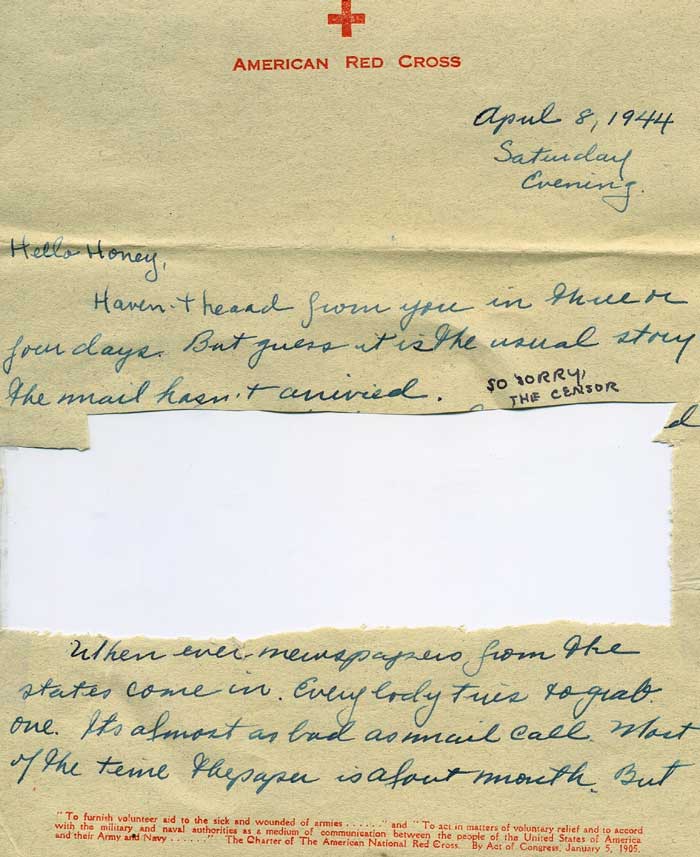 AMERICAN RED CROSS
April 8, 1944
Saturday
Evening.
Hello Honey,
Haven't heard from you in three or
four days. But guess it is the usual story
the mail hasn't arrivied.
SO SORRY,
THE CENSOR
When ever newspapers from the
states come in. Everybody tries to grab
one. Its almost as bad as mail call. Most
of the time the paper is about month. But
"To furnish volunteer aid to the sick and wounded of armies . . . . . ." and "To act in matters of voluntary relief and to accord
with the military and naval authorities as a medium of communication between the people of the United States of America
and their Army and Navy . . . . . . ." The Charter of The American National Red Cross. By Act of Congress, January 5, 1905.